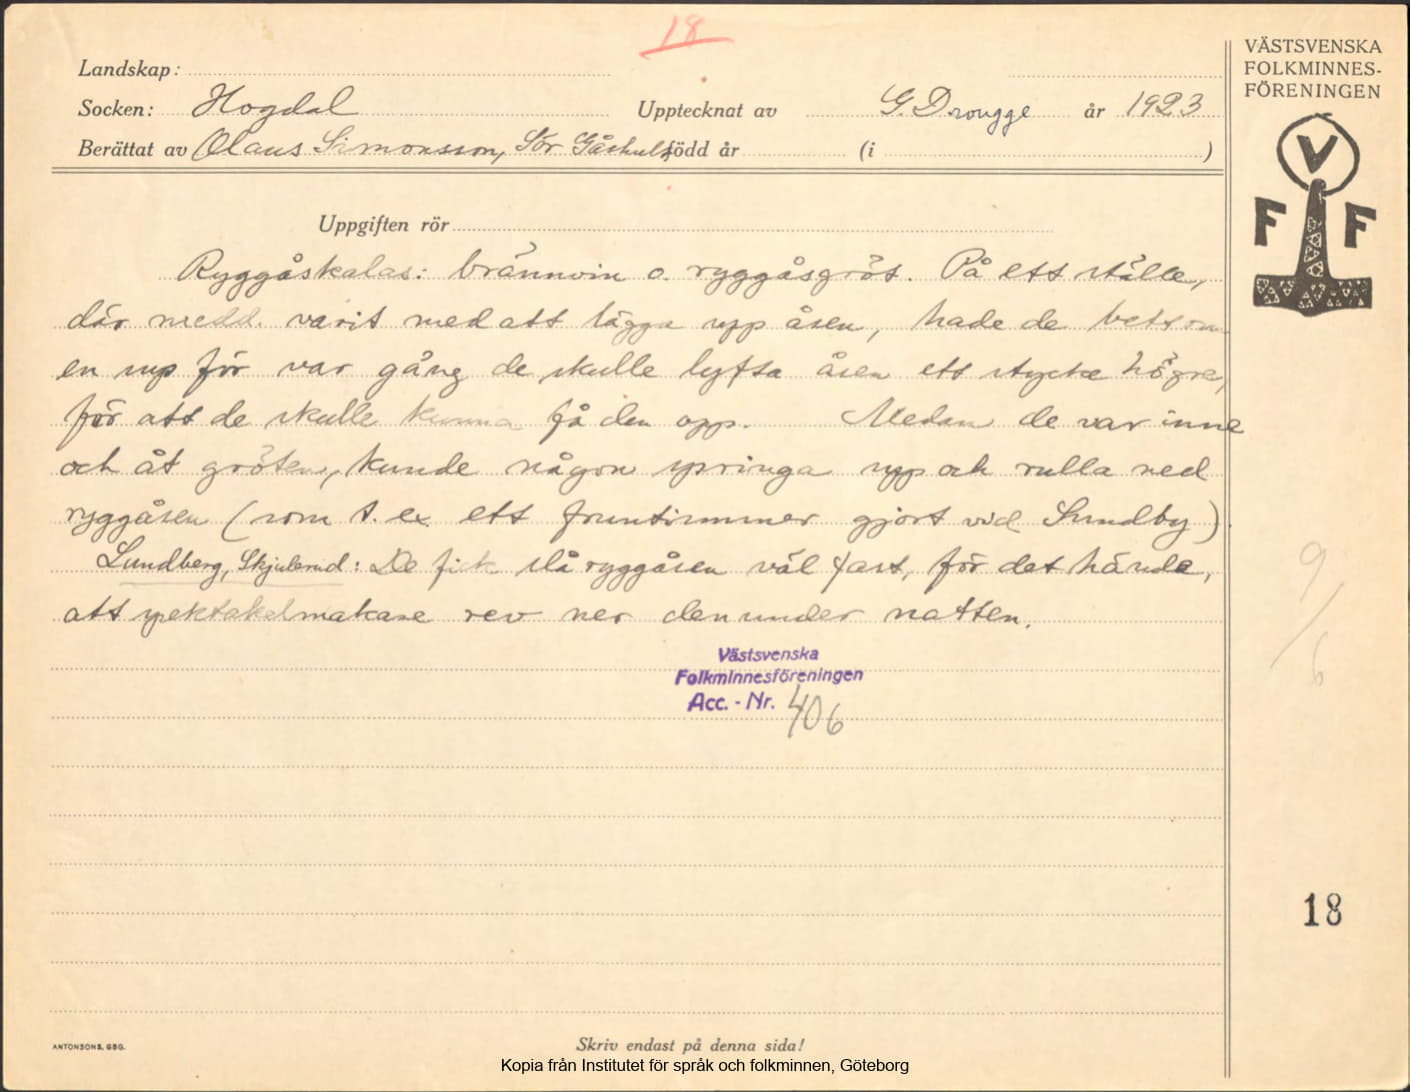 18
Landskap:
VÄSTSVENSKA
FOLKMINNES-
FÖRENINGEN
Socken: Hogdal Upptecknat av G. Drougge år 1923
Berättat av Olaus Simonsson, Sör Gåshult född år (i )
V
F F
Uppgiften rör
Ryggåskalas: brännvin o. ryggåsgröt. På ett ställe,
där medd. varit med att lägga upp åsen, hade de bett om
en sup för var gång de skulle lyfta åsen ett stycke högre,
för att de skulle kunna få den opp. Medan de var inne
och åt gröten, kunde någon springa upp och rulla ned
ryggåsen (som t. ex. ett fruntimmer gjort vid Sundby).
Lundberg, Skjulerud: De fick slå ryggåsen väl fast, för det hände,
att spektakelmakare rev ner den under natten.
9/6
Västsvenska
Folkminnesföreningen
Acc. - Nr. 406
18
ANTONSONS, GBG.
Skriv endast på denna sida!
Kopia från Institutet för språk och folkminnen, Göteborg